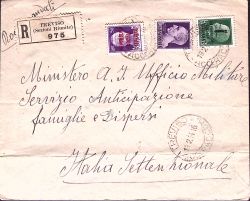 R
TREVISO
(Settori Riuniti)
975
Ministero A. I. Ufficio Militare
Servizio Anticipazione
famiglie e Dispersi
Italia Settentrionale